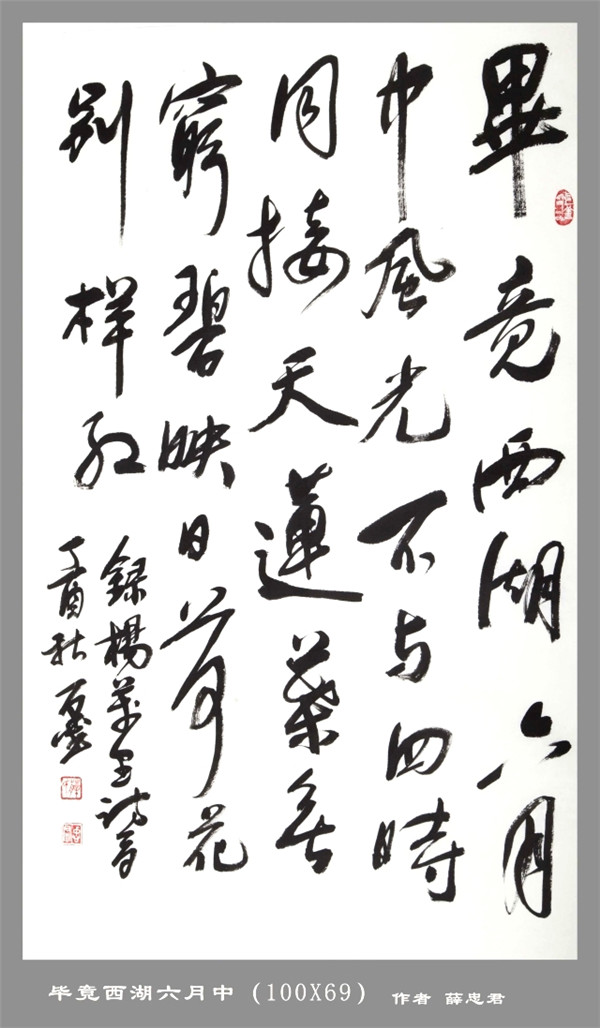 畢竟西湖六月
中風光不与四時
同接天蓮葉無
窮碧映日荷花
別樣紅
録楊萬里詩一首
丁酉秋
毕竟西湖六月中（100X69） 作者 薛忠君